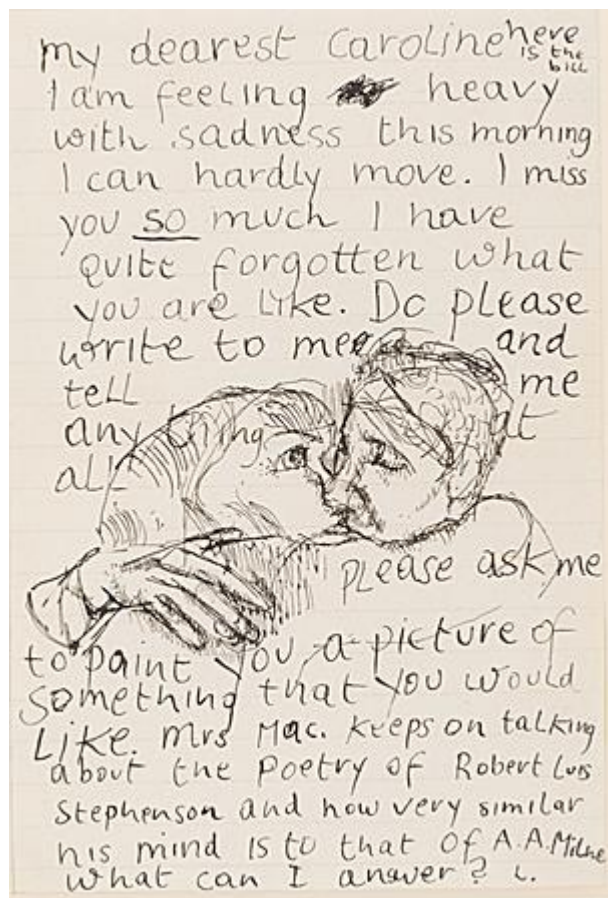 my dearest Caroline here is the bill
I am feeling heavy
with sadness this morning
I can hardly move. I miss
you so much I have
quite forgotten what
you are like. Do please
write to me and
tell me
any thing at
all
please ask me
to paint you a picture of
something that you would
Like. Mrs Mac. keeps on talking
about the Poetry of Robert Luis
Stephenson and how very similar
his mind is to that of A.A.Milne
What can I answer? L.